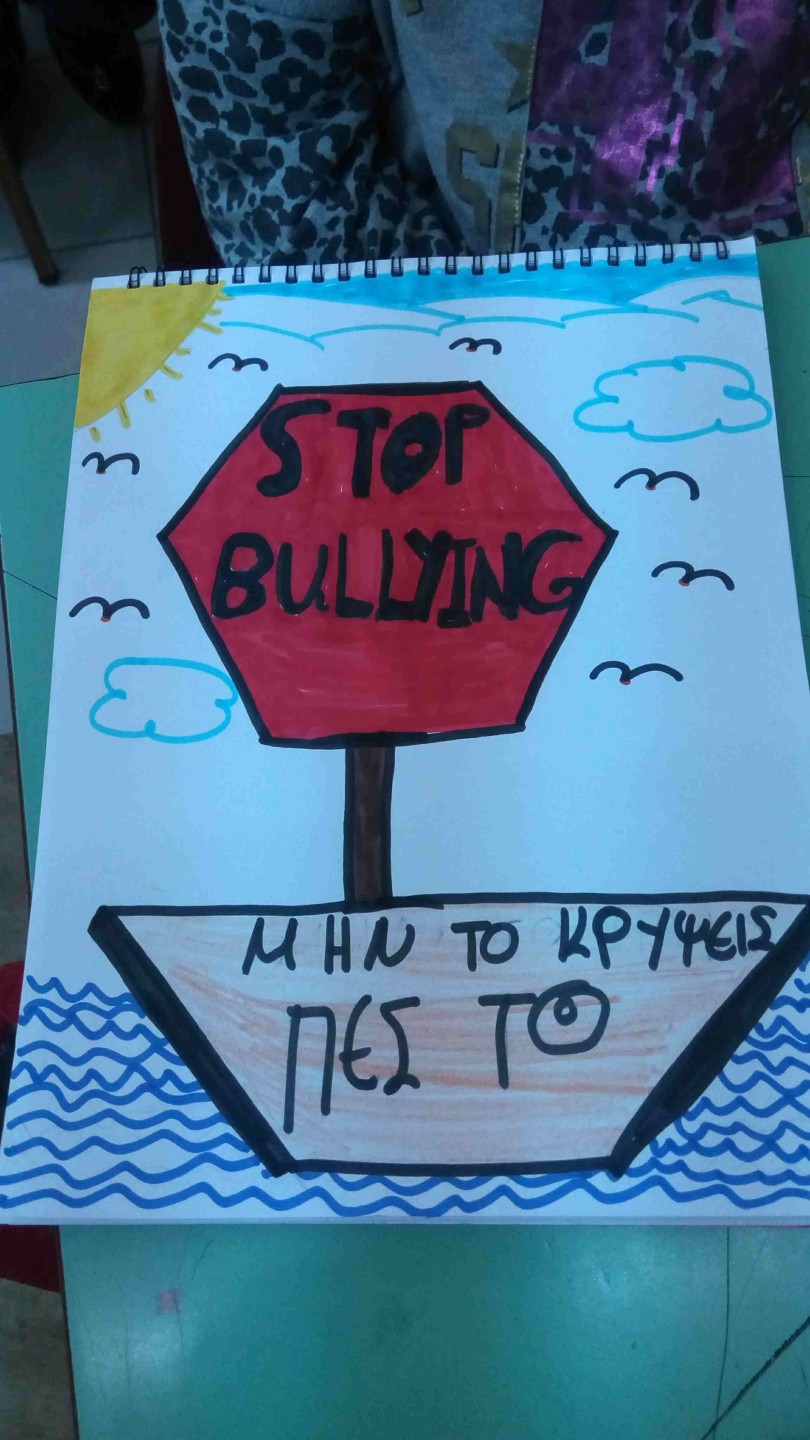 STOP
BULLYING
ΜΗΝ ΤΟ ΚΡΥΨΕΙΣ
ΠΕΣ ΤΟ